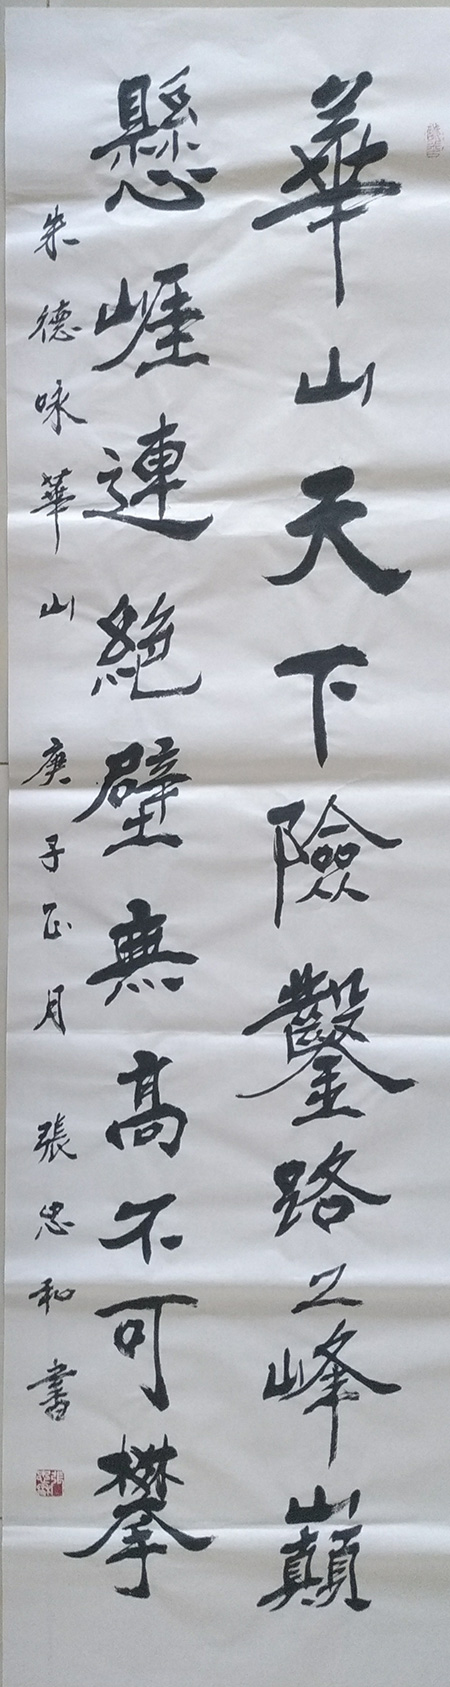 華山天下險鑿路之峰巔
懸崖連絕壁無高不可攀
朱德咏華山 庚子正月 張忠和書